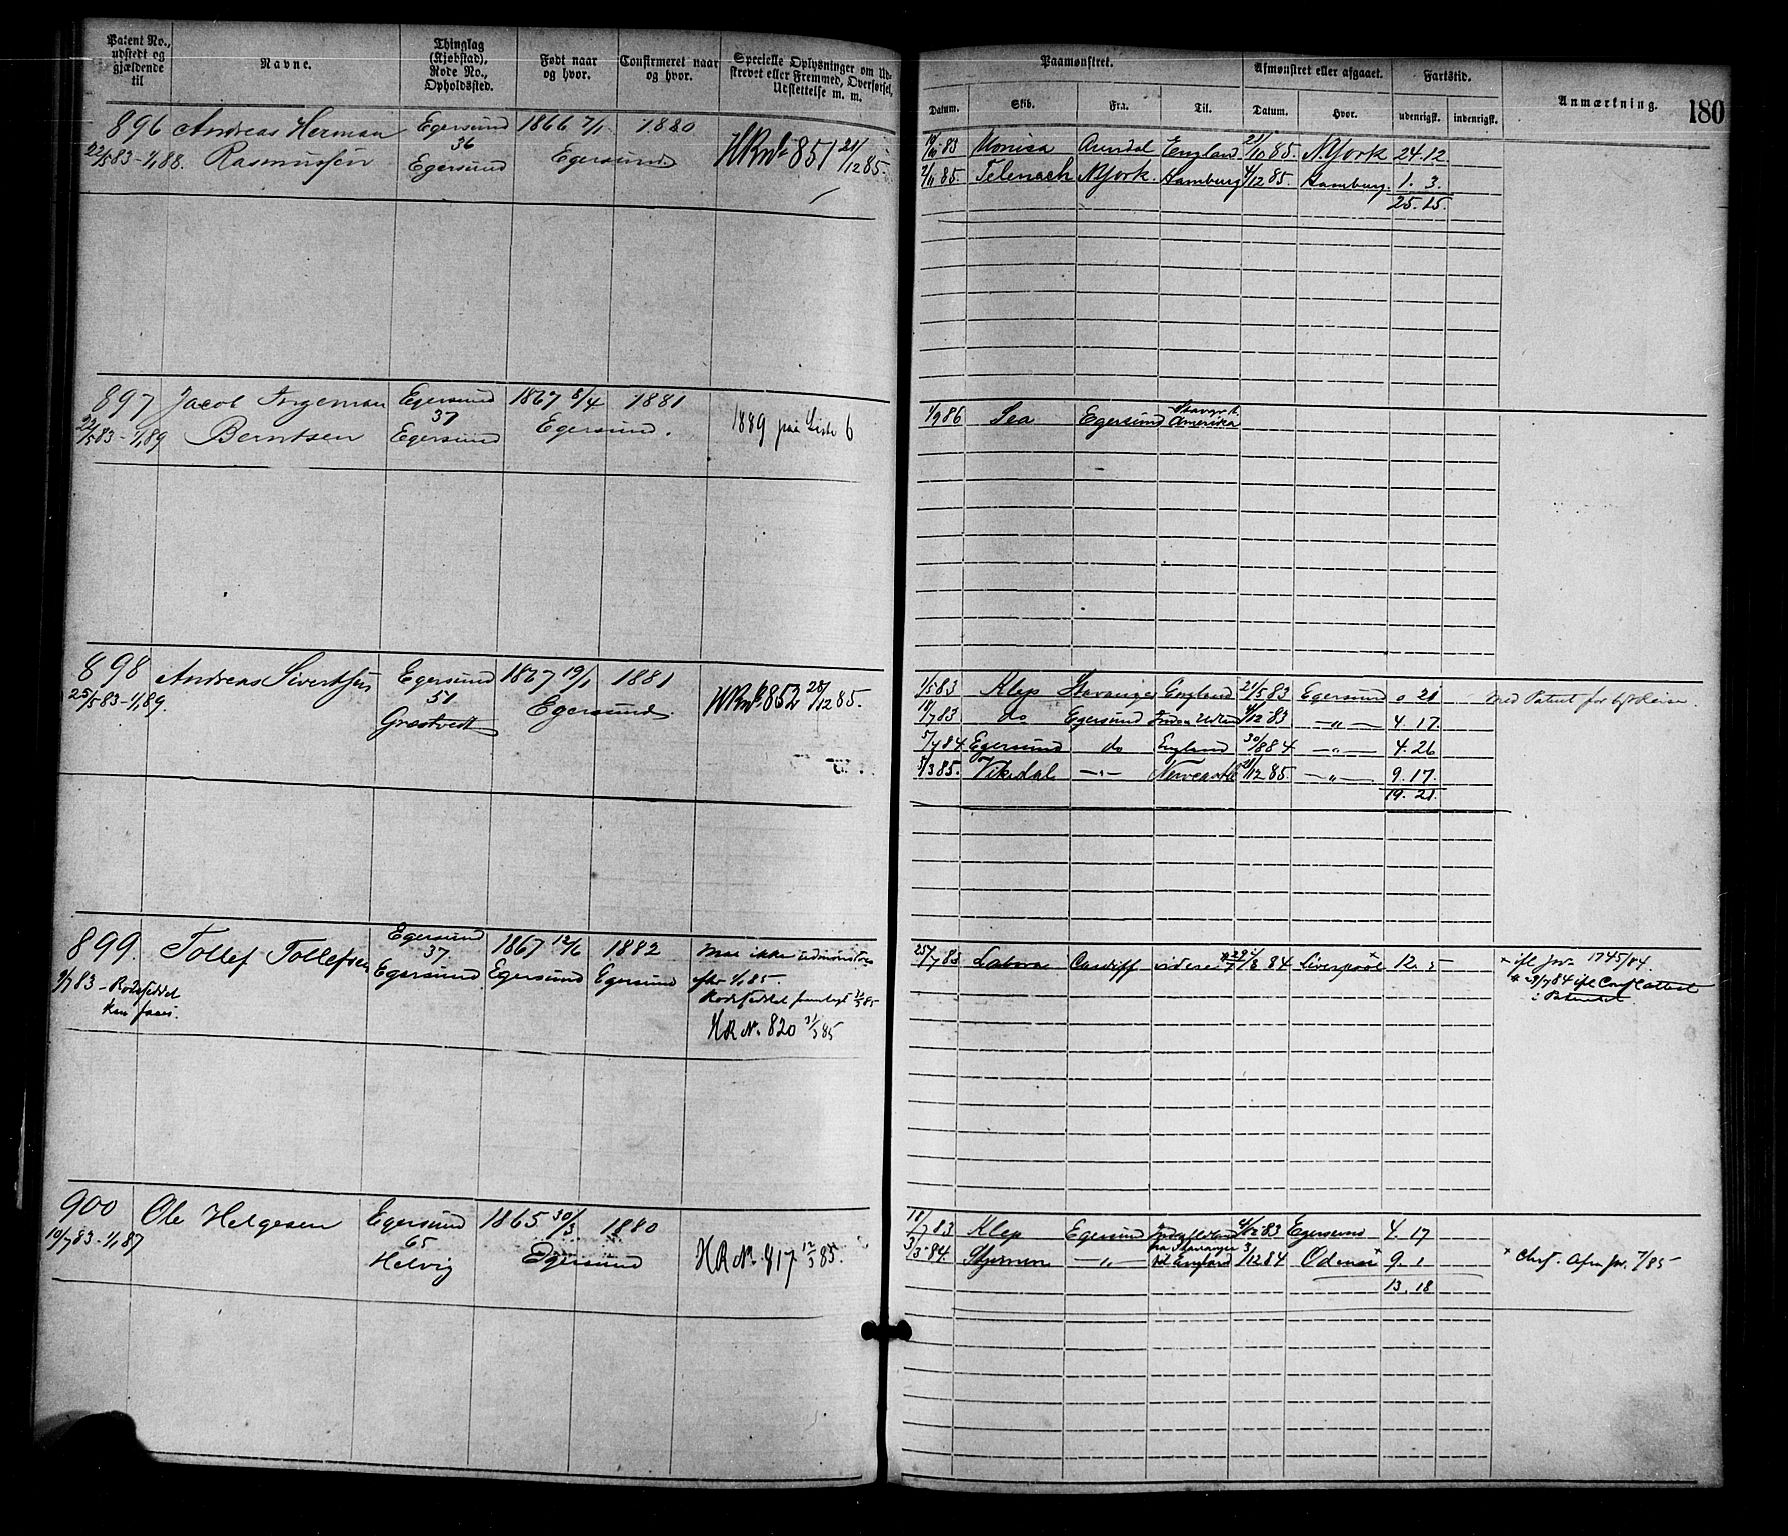 Patent No., udstedt og gjældende til
Navne.
Thinglag (Kjøbstad), Rode No., Opholdssted.
Født naar og hvor.
Confirmeret naar og hvor.
Specielle Oplysninger om Udskrevet eller Fremmed, Overførsel, Udslettelse m. m.
Paamønstret.
Afmønstret eller afgaaet.
Fartstid.
Anmærkning.
180
Datum. Skib. Fra. Til. Datum. Hvor. udenrigsk. indenrigsk.
896 Andreas Herman Egersund 1866 7/1 1880
22/5 83-1/1 88. Rasmussen 36 Egersund Egersund HR No 851 21/12 85.
83 Monica Arendal England 21/10 85. N.York 24.12
2/11 85. Telemach N.York. Hamburg 4/12 85. Hamburg. 1. 3.
25.15.
897 Jacob Ingeman Egersund 1867 5/4 1881
22/5 83-1/1 89 Berntsen 37 Egersund Egersund. 1889 paa Liste 6
1/9 86 Sea Egersund Amerika
898 Andreas Sivertsen Egersund 1867 19/1 1881
25/5 83-1/1 89. 51 Egersund HR No 852 28/12 85.
Græstvedt
1/5 83 Klep Stavanger England 21/5 83 Egersund 0 21 Med Patent for 1ste Reise.
18/7 83 do Egersund 4/12 83 —"— 4.17
5/4 84. Egersund do England 30/8 84 —"— 4.26
5/3 85. Vikedal —"— Newcastle 21/12 85. —"— 9.17.
19.21.
899. Tollef Tollefsen Egersund 37. Egersund 1867 12/6 Egersund 1882 Egersund Maa ikke udmønstres
9/7 83 - Rodeseddel efter 1/1 85.
Rodeseddel fremlagt 31/3 85
HR N. 820 31/3 85
25/7 83 Cardiff videre 84 Liverpool × 12. 5 × ifl Jr. 1745/84.
84 ifl Conf attest
i Patentet
900 Ole Helgesen Egersund 1865 30/3 1880
10/7 83-1/1 87 65 Egersund HR No. 817. 12/3 85.
Helvig
18/7 83 Klep Egersund 4/12 83 Egersund 4. 17
3/3 84. Stjernen —"— fra Stavanger til England 3/12 84 Odense × 9. 1 × Chef. Afm Jr. 7/85
13. 18